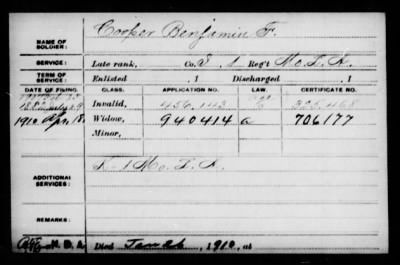 NAME OF SOLDIER: Cooper Benjamin F.
SERVICE: Late rank, Co. I, 1 Reg't Mo. L. A.
TERM OF SERVICE: Enlisted , 1 Discharged , 1
DATE OF FILING. CLASS. APPLICATION NO. LAW. CERTIFICATE NO.
Invalid, 456.143 325.468
1910 Apr 18 Widow, 940414 a 706177
Minor,
ADDITIONAL SERVICES: L-1 Mo. L. A.
REMARKS:
Died , 1910, at